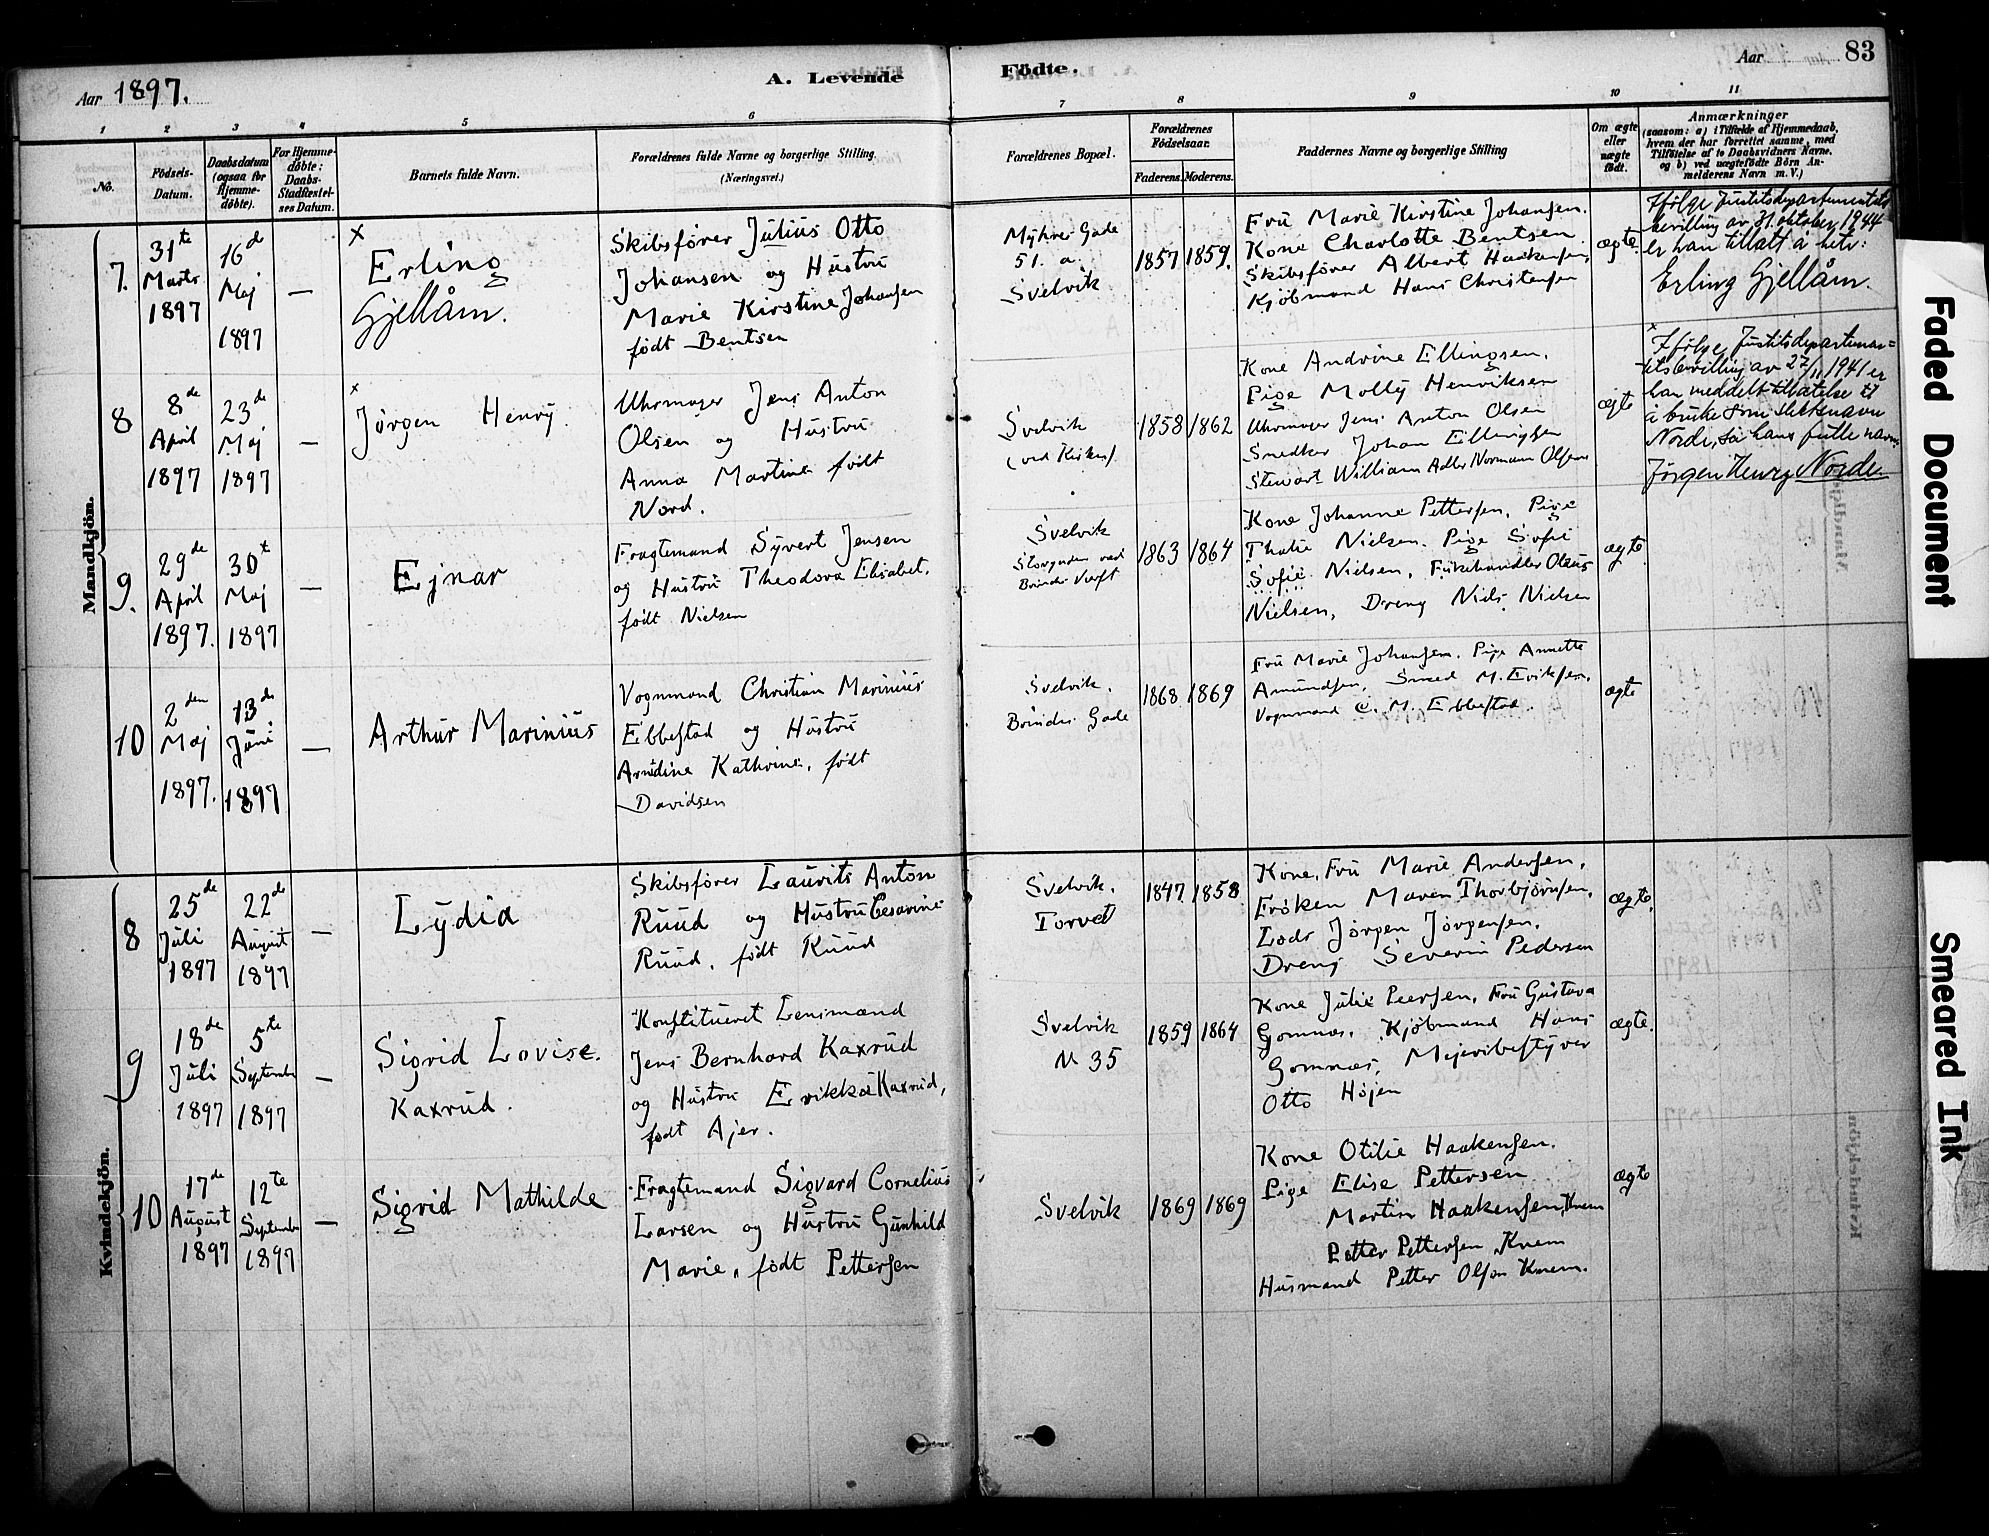 Aar 1897.
A. Levende
Födte.
Aar
83
1
2
3
4
5
6
7
8
9
10
11
No.
Födsels-
Datum.
Daabsdatum
(ogsaa for
Hjemme-
döbte).
For Hjemme-
döbte:
Daabs-
Stadfæstel-
ses Datum.
Barnets fulde Navn.
Forældrenes fulde Navne og borgerlige Stilling.
(Næringsvei.)
Forældrenes Bopæl.
Forældrenes
Födselsaar.
Faderens.
Moderens.
Faddernes Navne og borgerlige Stilling
Om ægte
eller
uægte
født.
Anmærkninger
(saasom: a) i Tilfælde af Hjemmedaab,
hvem der har forrettet samme, med
Tilföielse af to Daabsvidners Navne.
og b) ved uægtefödte Börn An-
melderens Navn m. V.)
Mandkjön.
7.
31te
Marts
1897
16de
Maj
1897
—
x
Erling
Gjellåm.
Skibsfører Julius Otto
Johansen og Hustru
Marie Kirstine Johansen
født Bentsen
Myhres Gade
51. a.
Svelvik
1857
1859.
Fru Marie Kirstine Johansen.
Kone Charlotte Bentsen
Skibsfører Albert Haakensen,
Kjøbmand Hans Christensen
ægte.
Ifølge Justitsdepartementets
bevilling av 31 oktober 1944
er han tillatt å hete:
Erling Gjellåm.
8
8de
April
1897
23de
Maj
1897
—
x
Jørgen Henry.
Uhrmager Jens Anton
Olsen og Hustru
Anna Martine født
Nord.
Svelvik
(ved Kirken)
1858
1862
Kone Andrine Ellingsen.
Pige Molly Henriksen
Uhrmager Jens Anton Olsen
Snedker Johan Ellingsen
Stewart William Adler Normann Olsen
ægte
x
Ifølge Justitsdepartemen=
tets bevilling av 27/11 1941 er
han meddelt tillatelse til
å bruke som slektsnavn
Norde, så hans fulle navn
Jørgen Henry Norde
9.
29de
April
1897.
30te
Maj
1897
—
Ejnar
Fragtemand Syvert Jensen
og Hustru Theodora Elisabet,
født Nielsen
Svelvik
1863
1864
Kone Johanne Pettersen, Pige
Thalie Nielsen. Pige Sofie
Sofie Nielsen, Fiskehandler Olaus
Nielsen, Dreng Niels Nielsen
ægte
10
2den
Maj
1897.
13de
Juni
1897
—
Arthur Marinius
Vognmand Christian Marinius
Ebbestad og Hustru
Arudine Kathrine, født
Davidsen
Svelvik.
Gade
1868
1869
Fru Marie Johansen. Pige Annette
Amundsen, Smed M. Eriksen,
Vognmand C. M. Ebbestad.
ægte
Kvindekjön.
8
25de
Juli
1897
22de
August
1897
—
Lydia
Skibsfører Laurits Anton
Ruud og Hustru Cesarine
Ruud, født Ruud
Svelvik.
Torvet
1847
1858
Kone, Fru Marie Andersen,
Frøken Maren Thorbjørnsen,
Lods Jørgen Jørgensen.
Dreng Severin Pedersen
ægte.
9
18de
Juli
1897
5te
September
1897
—
Sigrid Lovise.
Kaxrud.
Konstitueret Lensmand
Jens Bernhard Kaxrud
og Hustru Erikka Kaxrud,
født Ajer.
Svelvik
N 35
1859
1864
Kone Julie Peersen, Fru Gustava
Gomnæs, Kjøbmand Hans
Gomnæs, Mejeribestyrer
Otto Højen
ægte.
10
17de
August
1897
12te
September
1897
—
Sigrid Mathilde
Fragtemand Sigvard Cornelius
Larsen og Hustru Gunhild
Marie, født Pettersen
Svelvik
1869
1869
Kone Otilie Haakensen.
Pige Elise Pettersen
Martin Haakensen, Knem
Petter Pettersen Knem
Husmand Petter Olson Knem.
ægte
Faded Document
Smeared Ink